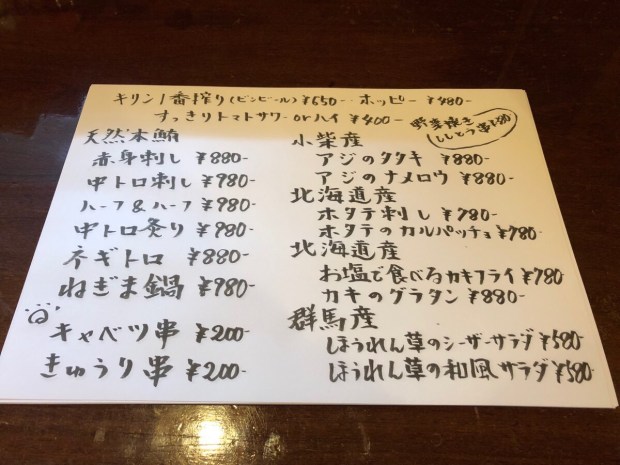 キリン一番搾り(ビンビール)¥650- ホッピー ¥480-
すっきりトマトサワー or ハイ ¥400-
野菜焼き
ししとう串 ¥180
天然本鮪
赤身刺し ¥880-
中トロ刺し ¥980-
ハーフ&ハーフ ¥980-
中トロ炙り ¥980-
ネギトロ ¥880-
ねぎま鍋 ¥980-
キャベツ串 ¥200-
きゅうり串 ¥200-
小柴産
アジのタタキ ¥880-
アジのナメロウ ¥880-
北海道産
ホタテ刺し ¥780-
ホタテのカルパッチョ ¥780-
北海道産
お塩で食べるカキフライ ¥780
カキのグラタン ¥880-
群馬産
ほうれん草のシーザーサラダ ¥580-
ほうれん草の和風サラダ ¥580-